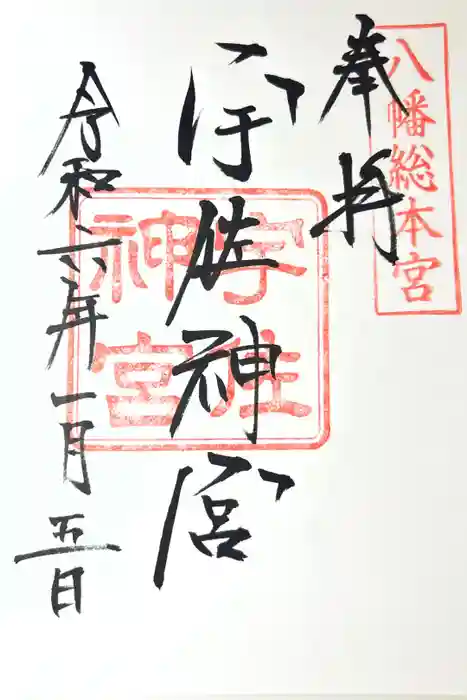 八幡総本宮
奉拝
宇佐神宮
宇佐神宮
令和六年一月五日